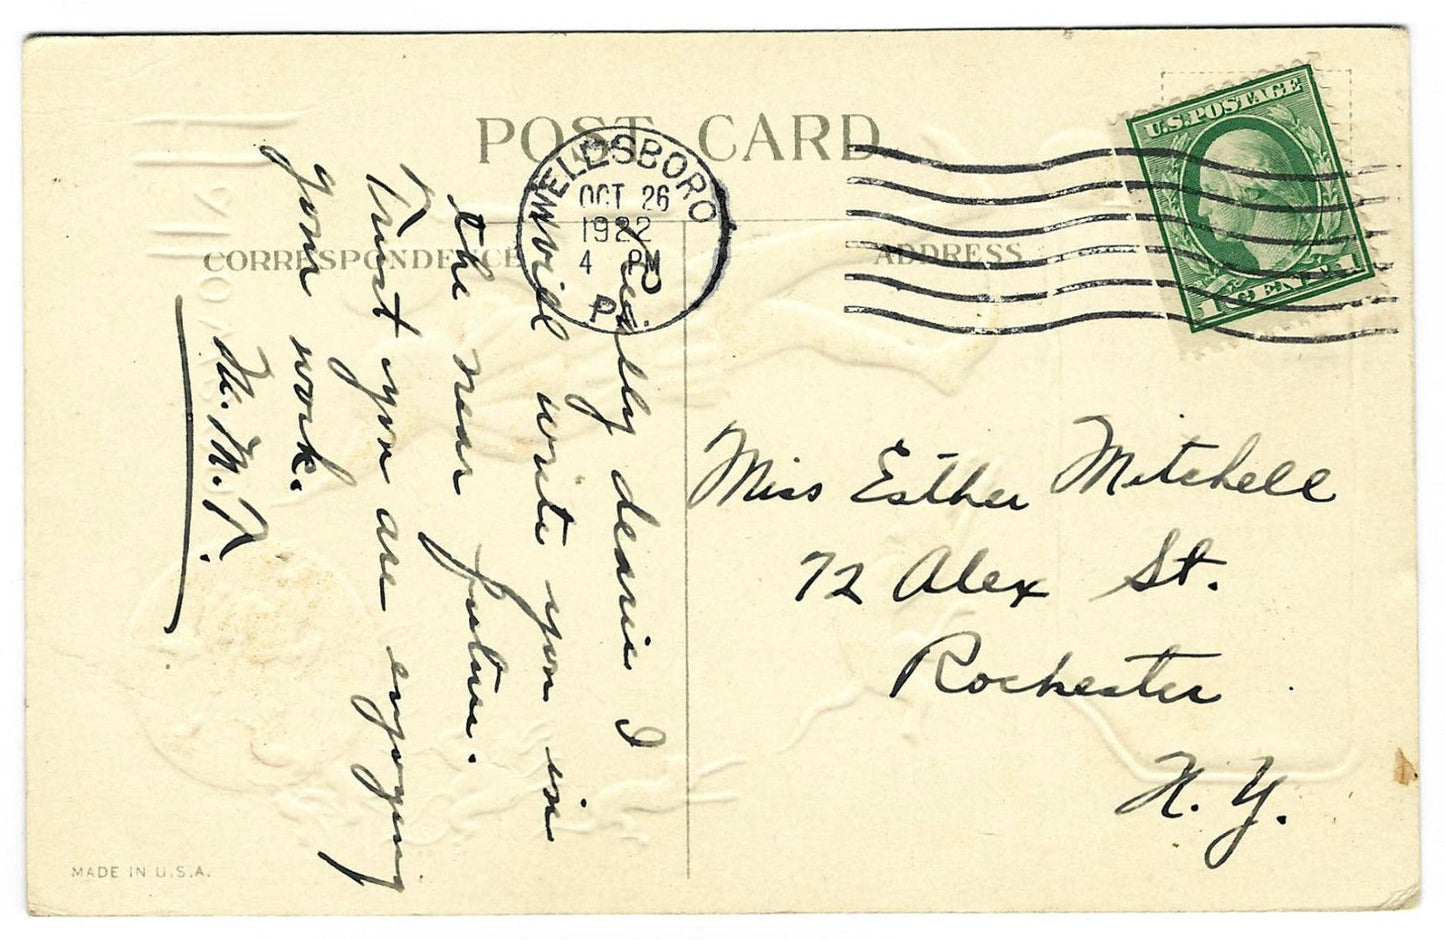 POST CARD
WELLSBORO
OCT 26
1922
4 PM
PA
U.S. POSTAGE
1 CENT 1
CORRESPONDENCE
ADDRESS
Really dearie I
will write you in
the near future.
Trust you are enjoying
your work.
M. M. T.
Miss Esther Mitchell
72 Alex St.
Rochester
N. Y.
MADE IN U.S.A.